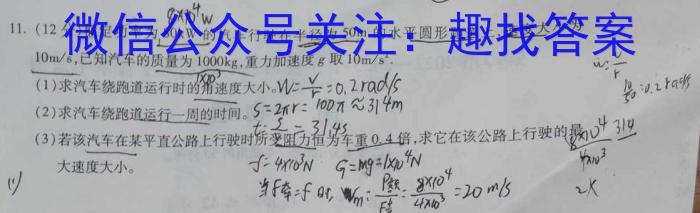 8×10⁴W
11.(12分)额定功率为80kW的汽车行驶在半径为50m的水平圆形跑道上,速度大小
微信公众号关注:趣找答案
10m/s,已知汽车的质量为1000kg,重力加速度g取10m/s².
1×10³
(1)求汽车绕跑道运行时的角速度大小。W=v/r=0.2rad/s
10/50=0.2rad/s
(2)求汽车绕跑道运行一周的时间。S=2πr=100π≈314m
t=S/v=31.4s
(3)若该汽车在某平直公路上行驶时所受阻力恒为车重0.4倍,求它在该公路上行驶的最
大速度大小。
f=4×10³N G=mg=1×10⁴N
8×10⁴/4×10³
(1)
当F牵=f时, Vm=P额/F牵=8×10⁴/4×10³=20m/s